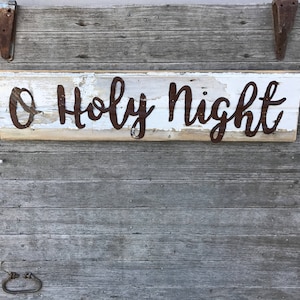 O Holy Night